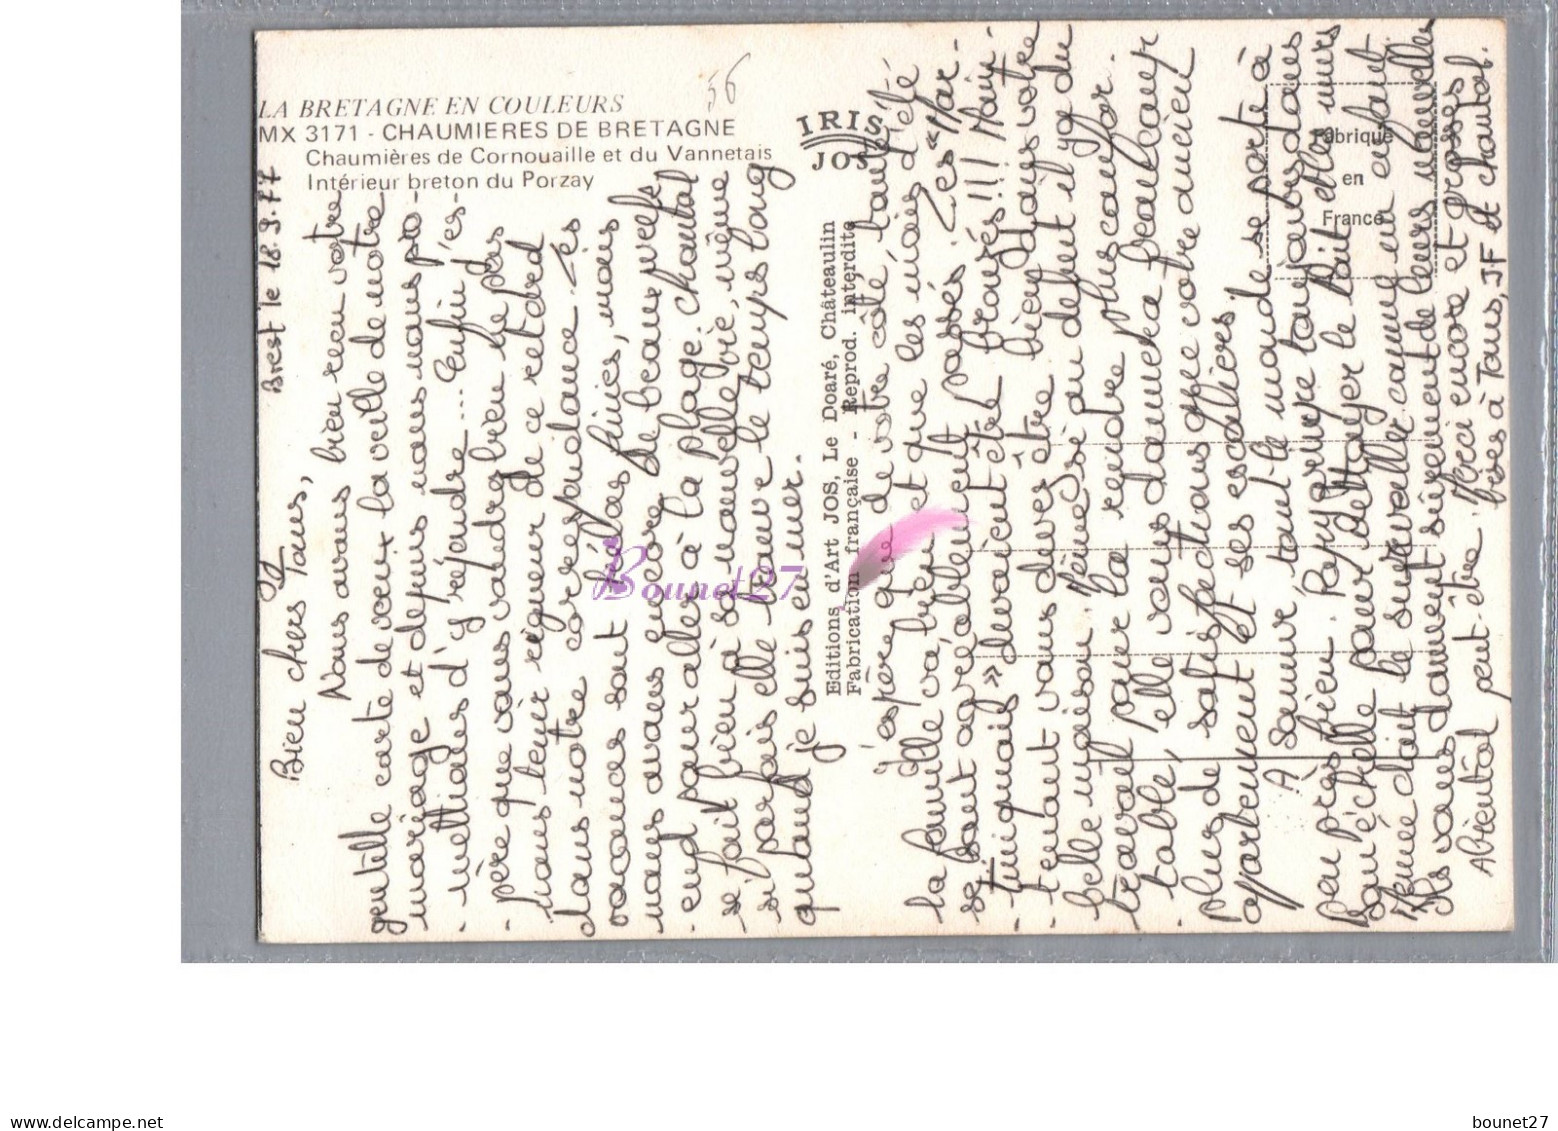 LA BRETAGNE EN COULEURS
56
MX 3171 - CHAUMIERES DE BRETAGNE
Chaumières de Cornouaille et du Vannetais
Intérieur breton du Porzay
IRIS
JOS
Editions d'Art JOS, Le Doaré, Châteaulin
Fabrication française - Reprod. interdite
Fabriqué
en
France
Brest le 18.9.77
Bien chers Tous,
Nous avons bien reçu votre
gentille carte de voeux la veille de notre
mariage et depuis nous nous pro-
-mettions d'y répondre... Enfin j'es-
-père que vous voudrez bien ne pas
nous tenir rigueur de ce retard
dans notre correspondance. Les
vacances sont hélas finies, mais
nous avons encore de beaux week
end pour aller à la plage. Chantal
se fait bien à sa nouvelle vie, même
si parfois elle trouve le temps long
quand je suis en mer.
J'espère que de votre côté toute
la famille va bien et que les mois d'été
se sont agréablement passés. Les "Mar-
-tiniquais" devaient être bronzés!!! Main-
-tenant vous devez être bien dans votre
belle maison. Même si au début il y a du
travail pour la rendre plus confor-
-table, elle vous donnera beaucoup
plus de satisfactions que votre ancien
appartement et ses escaliers.
A Saumur tout le monde se porte à
peu près bien. Papy grimpe toujours dans
son échelle pour nettoyer le toit et les murs
Mémée doit le surveiller comme un enfant.
Ils vous donnent sûrement de leurs nouvelles
Merci encore et grosses
bises à Tous, JF et Chantal.
A bientôt peut-être.
Bounet27
bounet27.delcampe.net
bounet27